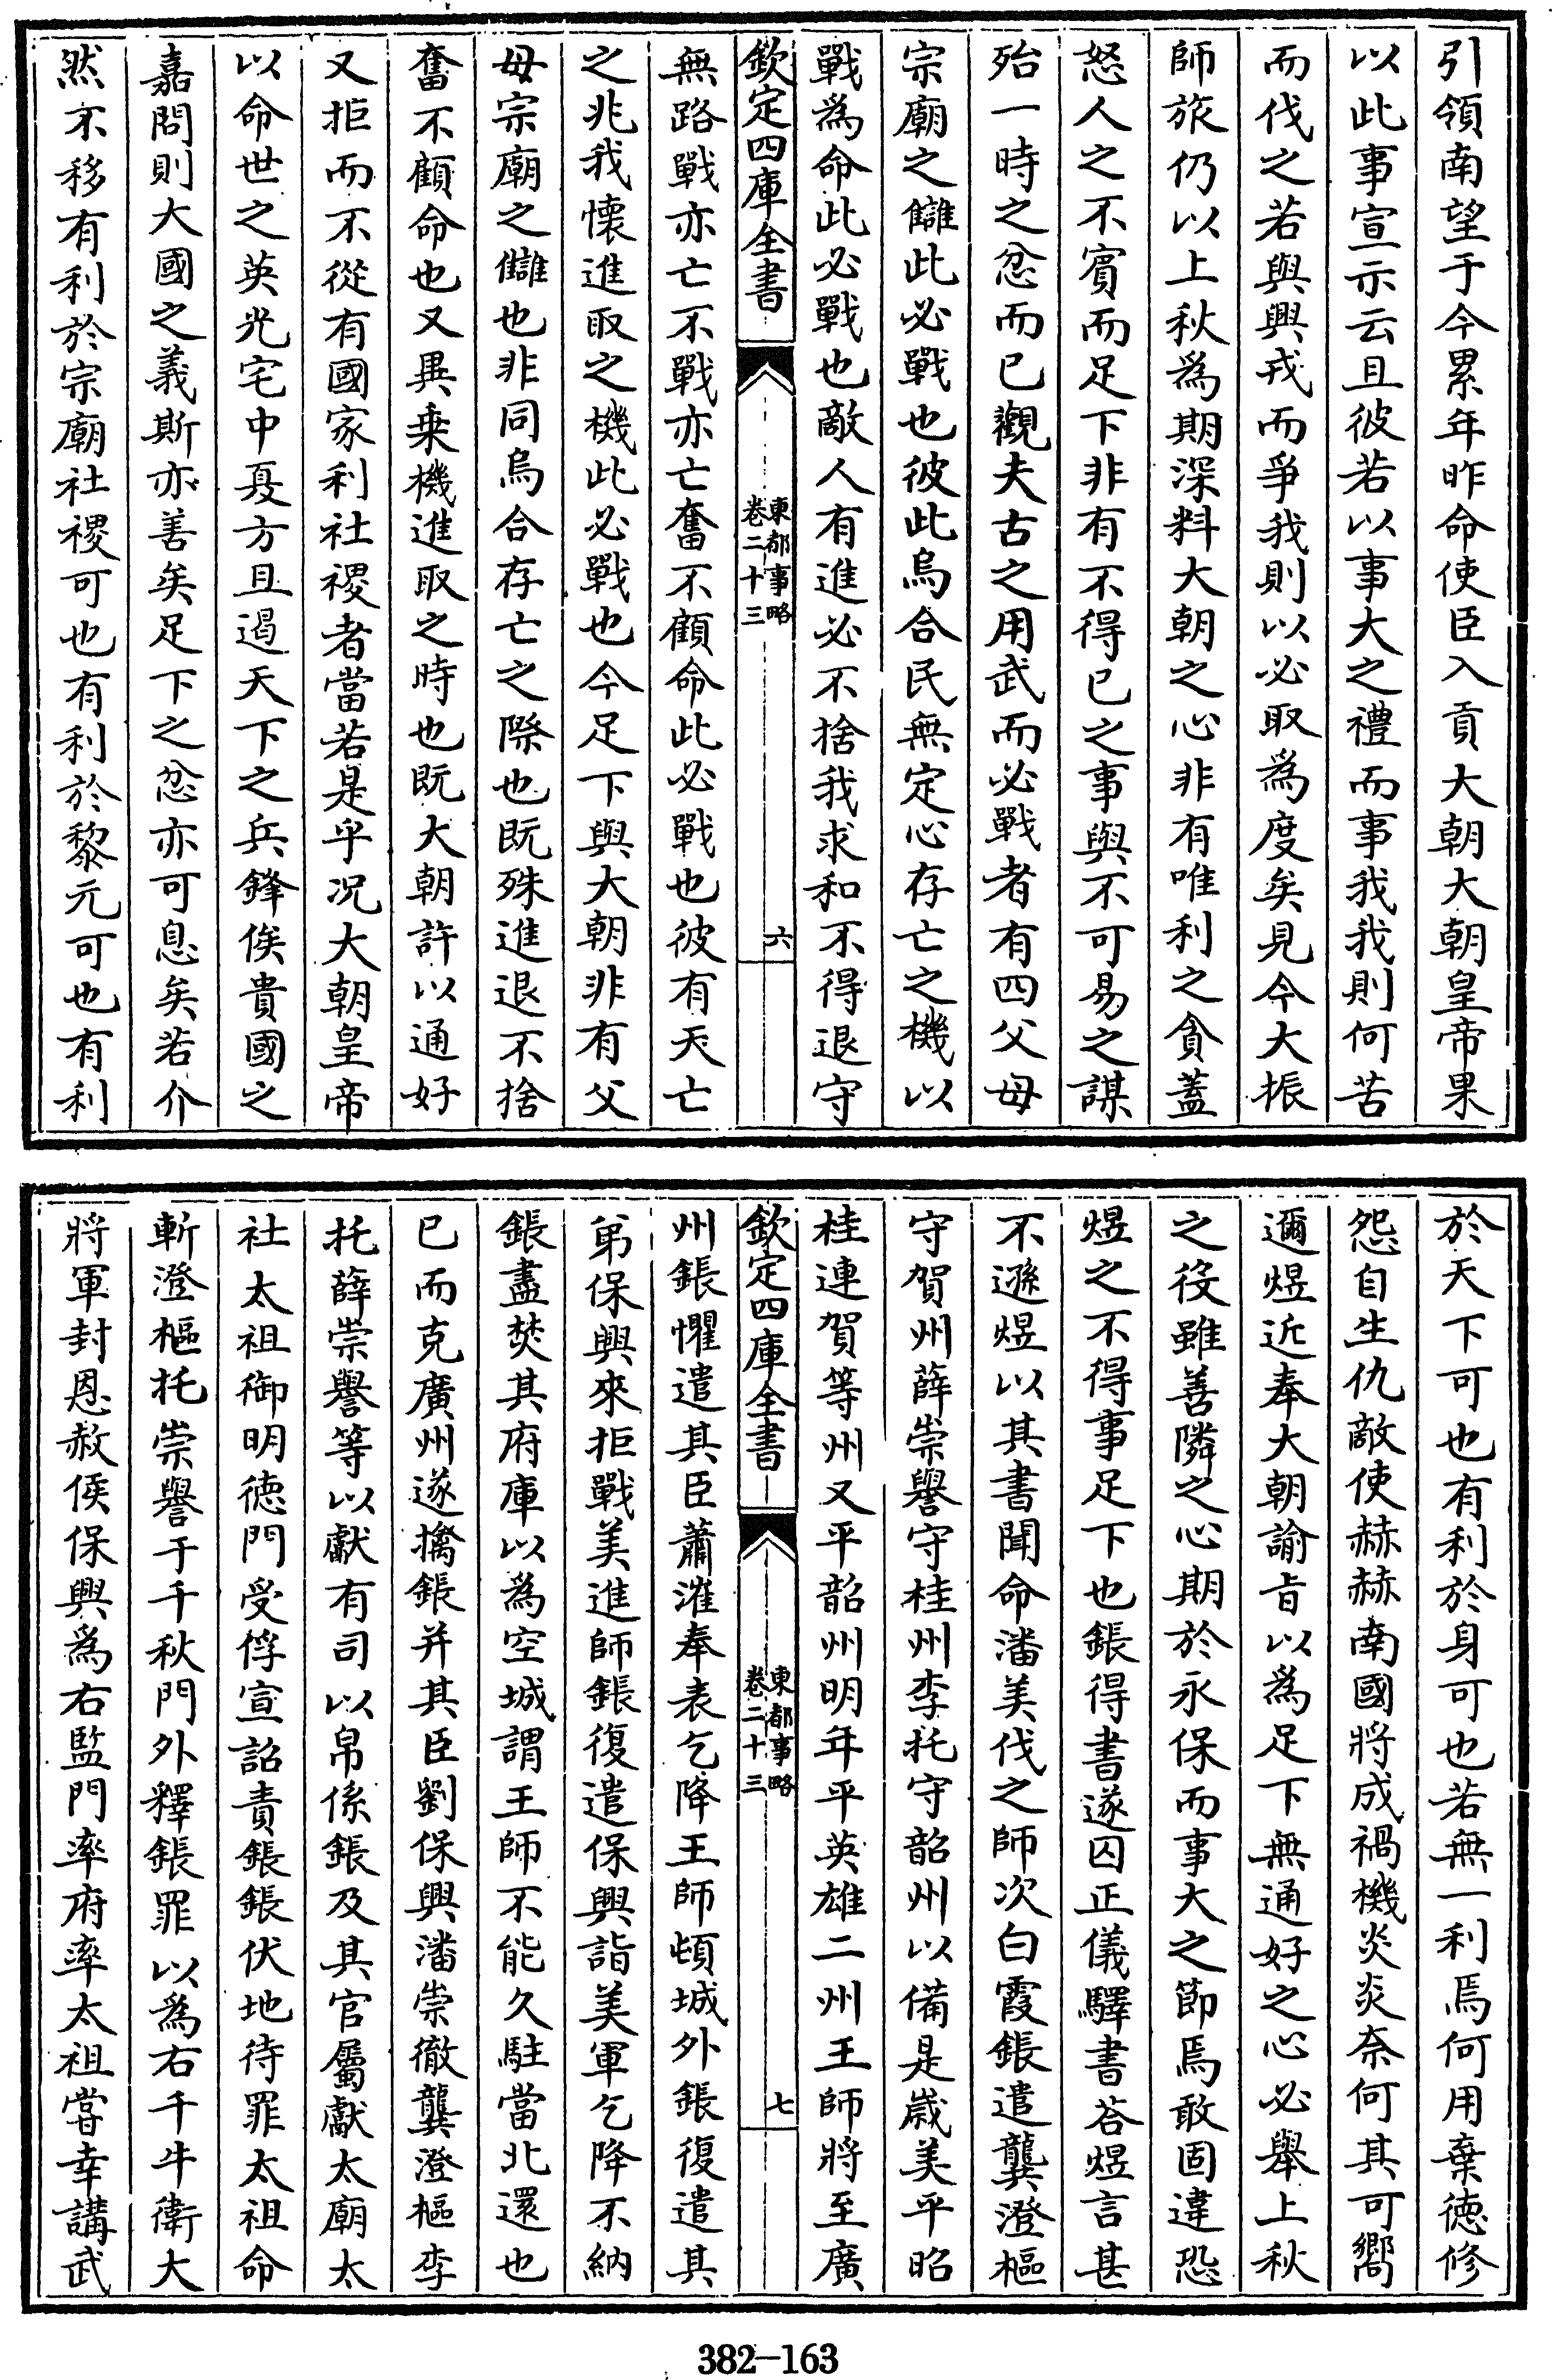 引領南望于今累年昨命使臣入貢大朝大朝皇帝果
以此事宣示云且彼若以事大之禮而事我我則何苦
而伐之若與興戎而爭我則以必取為度矣見今大振
師旅仍以上秋為期深料大朝之心非有唯利之貪蓋
怒人之不賓而足下非有不得已之事與不可易之謀
殆一時之忿而已觀夫古之用武而必戰者有四父母
宗廟之讎此必戰也彼此烏合民無定心存亡之機以
戰為命此必戰也敵人有進必不捨我求和不得退守
欽定四庫全書
東都事略
卷二十三
六
無路戰亦亡不戰亦亡奮不顧命此必戰也彼有天亡
之兆我懷進取之機此必戰也今足下與大朝非有父
母宗廟之讎也非同烏合存亡之際也既殊進退不捨
奮不顧命也又異乗機進取之時也既大朝許以通好
又拒而不從有國家利社稷者當若是乎況大朝皇帝
以命世之英光宅中夏方且遏天下之兵鋒俟貴國之
嘉問則大國之義斯亦善矣足下之忿亦可息矣若介
然不移有利於宗廟社稷可也有利於黎元可也有利
於天下可也有利於身可也若無一利焉何用棄德修
怨自生仇敵使赫赫南國將成禍機炎炎奈何其可嚮
邇煜近奉大朝諭旨以為足下無通好之心必舉上秋
之役雖善隣之心期於永保而事大之節焉敢固違恐
煜之不得事足下也鋹得書遂囚正儀驛書荅煜言甚
不遜煜以其書聞命潘美伐之師次白霞鋹遣龔澄樞
守賀州薛崇譽守桂州李托守韶州以備是歲美平昭
桂連賀等州又平韶州明年平英雄二州王師將至廣
欽定四庫全書
東都事略
卷二十三
七
州鋹懼遣其臣蕭漼奉表乞降王師頓城外鋹復遣其
弟保興來拒戰美進師鋹復遣保興詣美軍乞降不納
鋹盡焚其府庫以為空城謂王師不能久駐當北還也
已而克廣州遂擒鋹并其臣劉保興潘崇徹龔澄樞李
托薛崇譽等以獻有司以帛係鋹及其官屬獻太廟太
社太祖御明德門受俘宣詔責鋹鋹伏地待罪太祖命
斬澄樞托崇譽于千秋門外釋鋹罪以為右千牛衛大
將軍封恩赦侯保興為右監門率府率太祖嘗幸講武
382-163